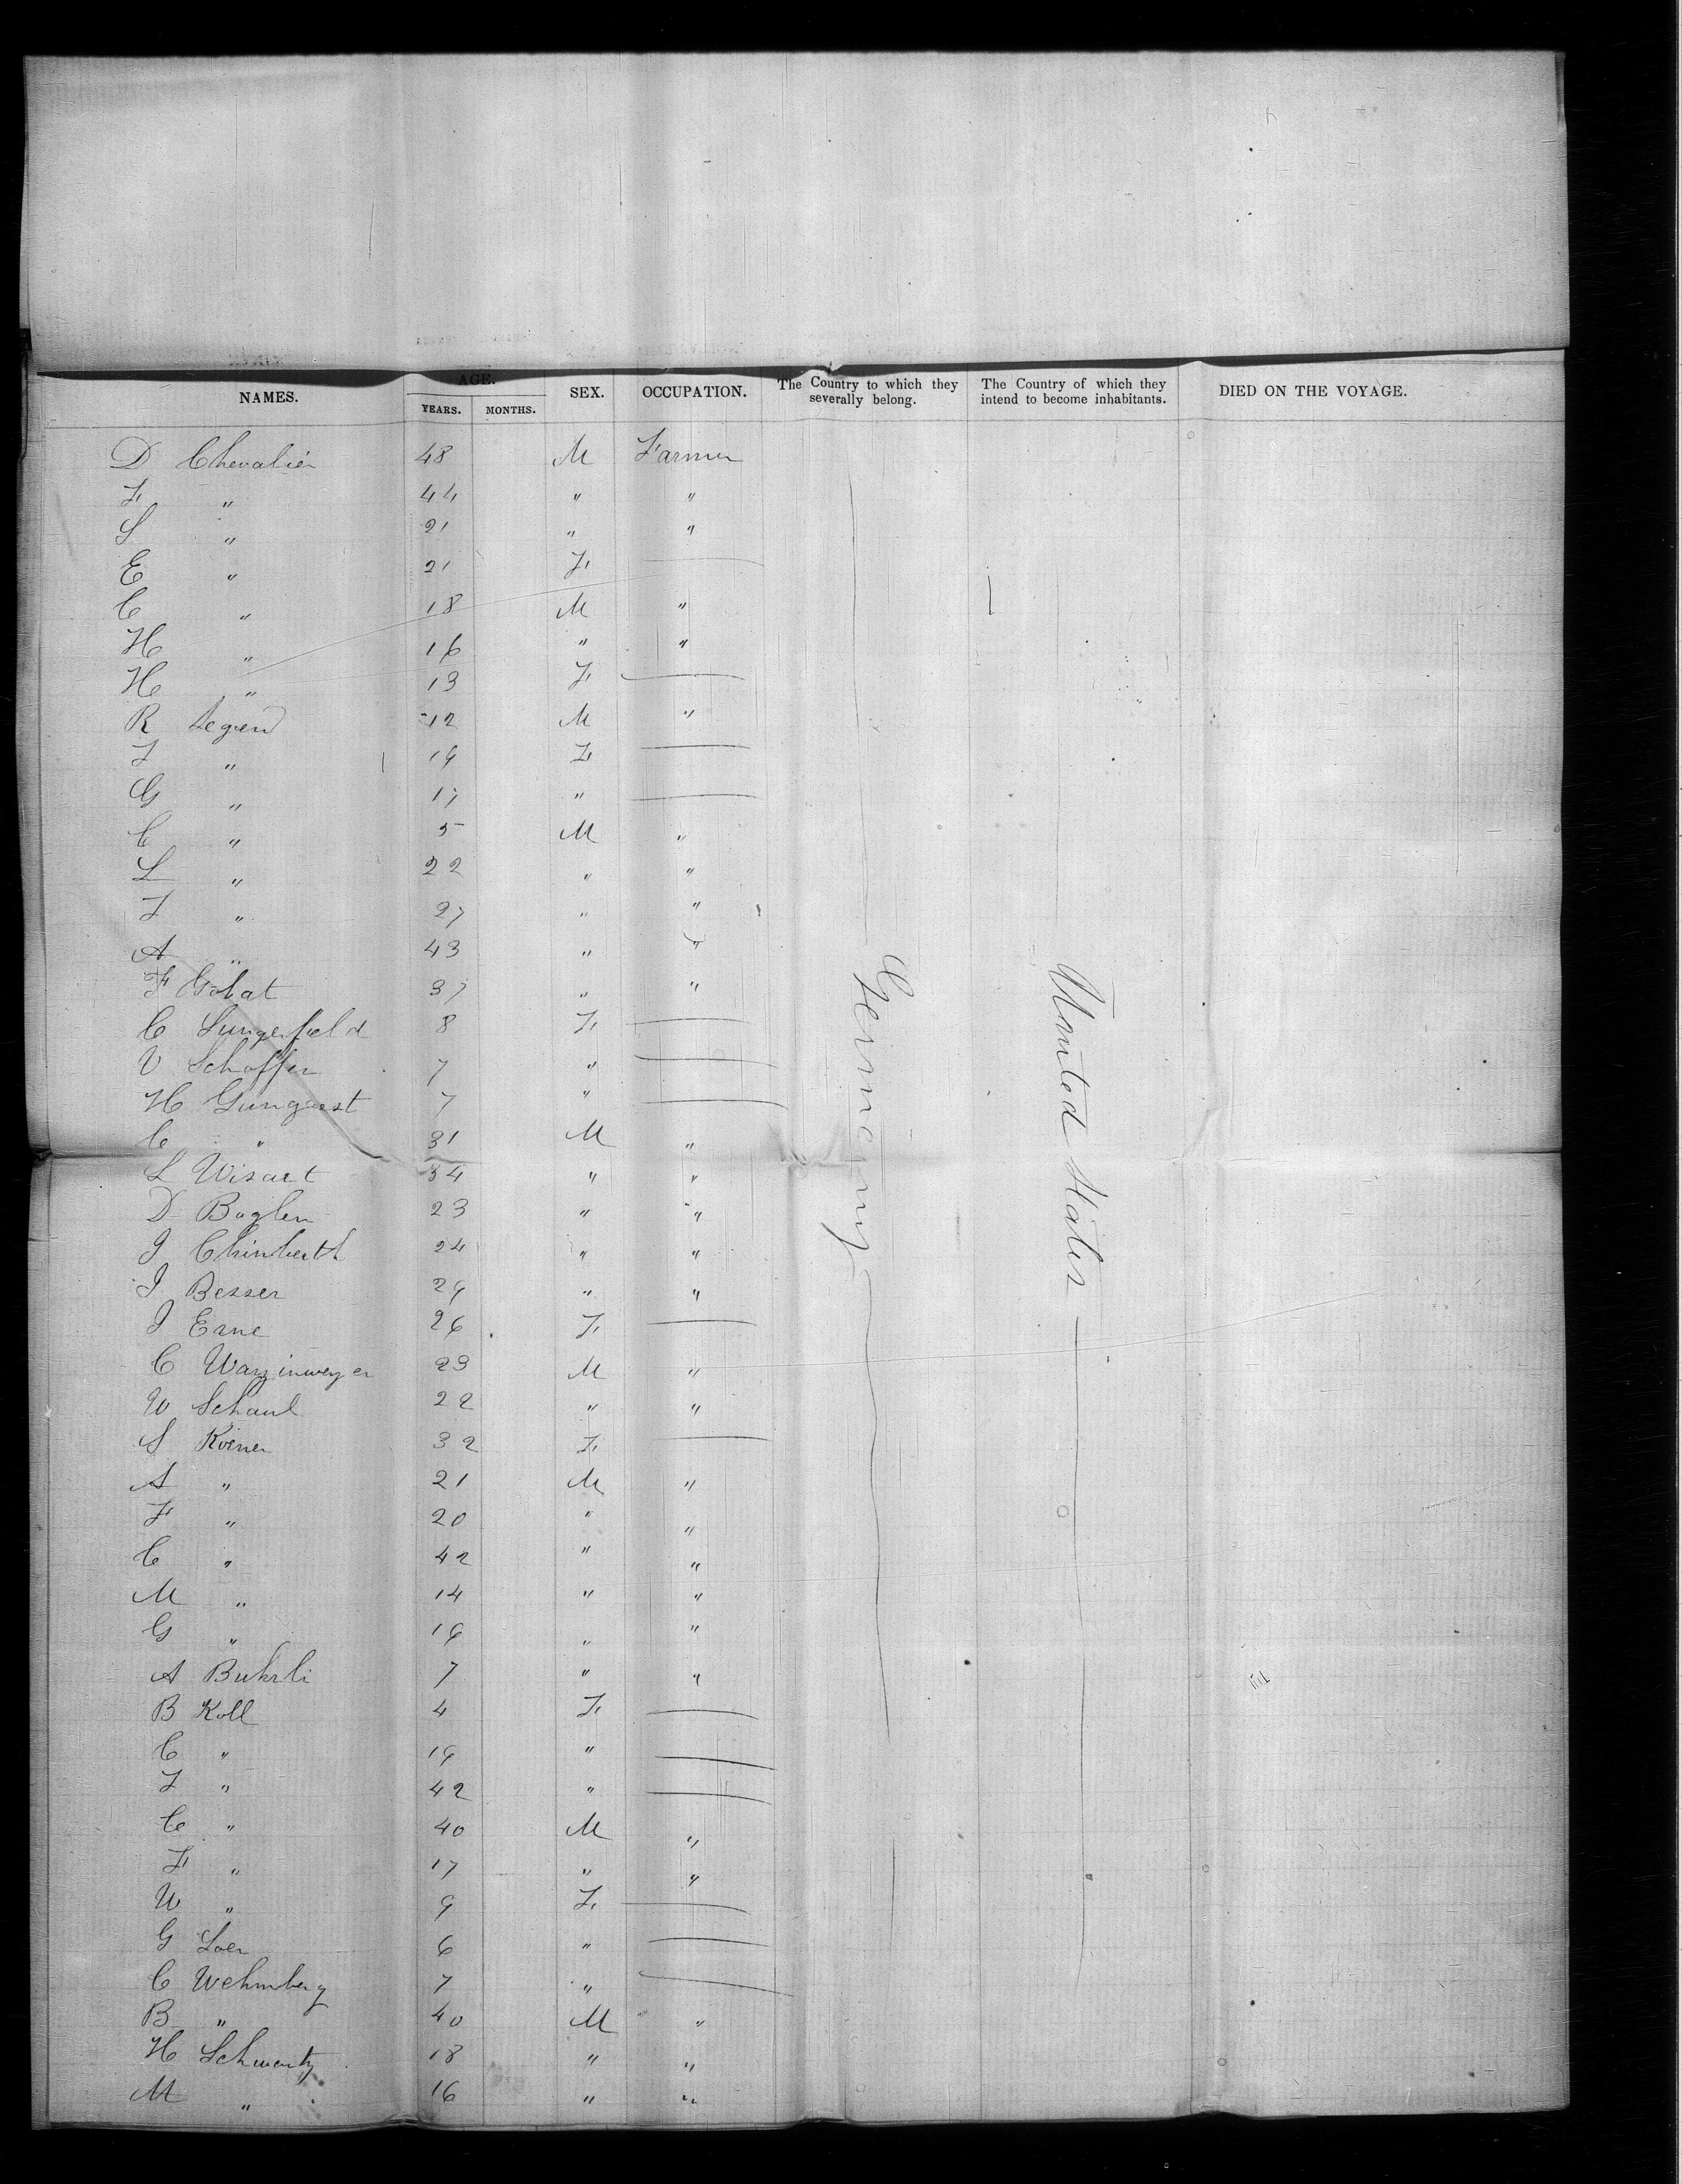 NAMES. AGE. YEARS. MONTHS. SEX. OCCUPATION. The Country to which they severally belong. The Country of which they intend to become inhabitants. DIED ON THE VOYAGE.
D Chevalier 48 M Farmer
F " 44 " "
S " 21 " "
E " 21 F —
C " 18 M "
H " 16 " "
H " 13 F —
R 12 M "
F " 19 F —
G " 17 " —
C " 5 M "
L " 22 " "
F " 27 " "
A " 43 " "
F Gobat 37 " "
C Lungerfield 8 F —
V Schaffer 7 " —
H 7 " —
C " 31 M "
L Wisart 34 " "
D Boglen 23 " "
J 24 " "
J Besser 29 " "
J Erne 26 F —
C 23 M "
W Schaul 22 " "
S Koener 32 F —
A " 21 M "
F " 20 " "
C " 42 " "
M " 14 " "
G " 16 " "
A Buhrli 7 " "
B Koll 4 F —
C " 19 " —
F " 42 " —
C " 40 M "
F " 17 " "
W " 9 F —
G Loer 6 " —
C Wehmberg 7 " —
B " 40 M "
H Schwartz 18 " "
M " 16 " "
Germany
United States